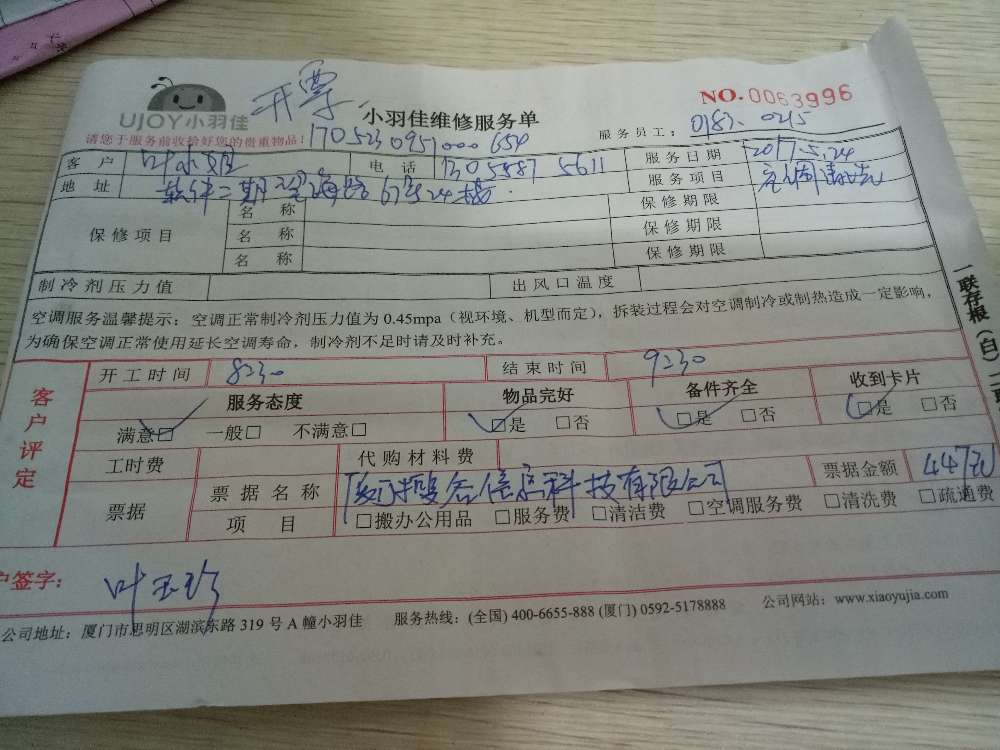 UJOY小羽佳
开票
小羽佳维修服务单
NO.0063996
请您于服务前收拾好您的贵重物品!
1705230951000654
服务员工: 0187. 0215
客户 叶小姐 电话 1305587 5611 服务日期 2017.5.24
地址 软件二期望海路61号24楼. 服务项目 空调清洗
保修项目
名称 保修期限
名称 保修期限
名称 保修期限
制冷剂压力值 出风口温度
空调服务温馨提示: 空调正常制冷剂压力值为 0.45mpa (视环境、机型而定), 拆装过程会对空调制冷或制热造成一定影响,
为确保空调正常使用延长空调寿命, 制冷剂不足时请及时补充。
客户评定
开工时间 8:30 结束时间 9:30
服务态度 物品完好 备件齐全 收到卡片
满意☑ 一般□ 不满意□ ☑是 □否 ☑是 □否 ☑是 □否
工时费 代购材料费
票据 票据名称 厦门搜谷信息科技有限公司 票据金额 447元
项目 □搬办公用品 □服务费 □清洁费 □空调服务费 □清洗费 □疏通费
户签字: 叶玉珍
公司地址: 厦门市思明区湖滨东路 319 号 A 幢小羽佳 服务热线: (全国) 400-6655-888 (厦门) 0592-5178888 公司网站: www.xiaoyujia.com
一联存报(白)二联